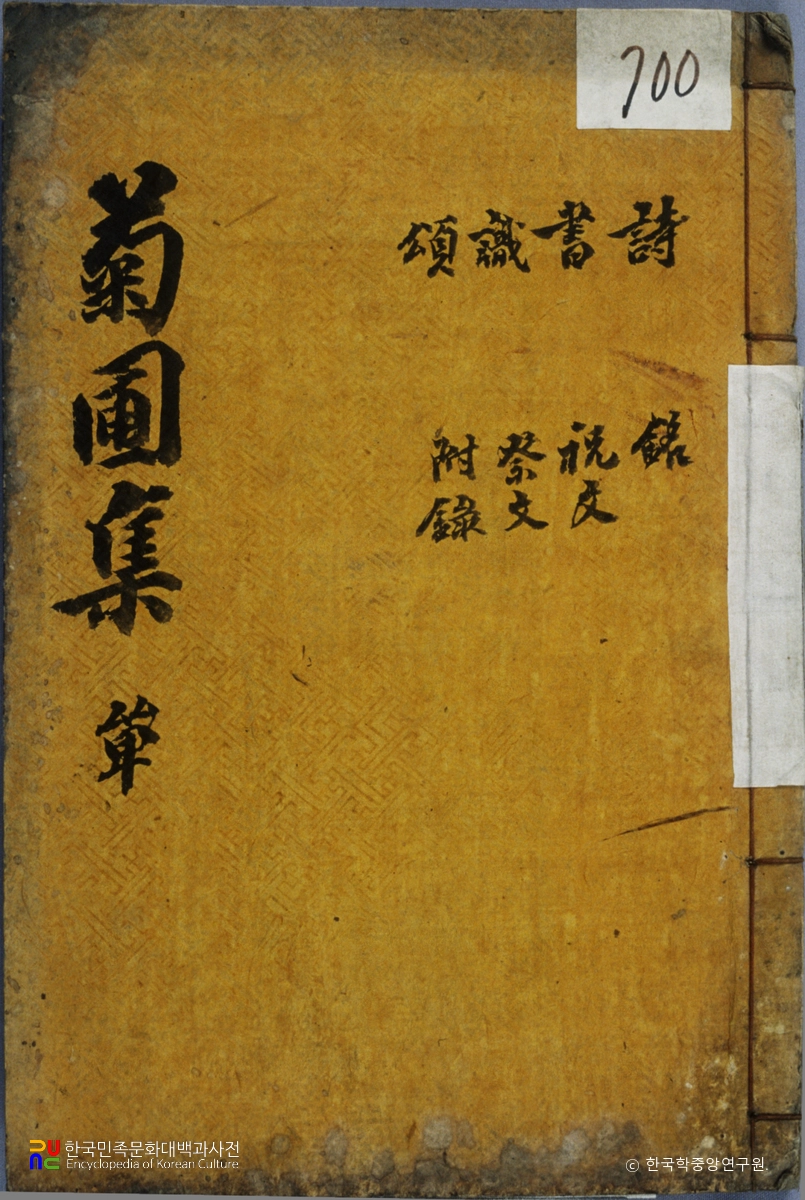 700
詩 書 識 頌
銘 祝文 祭文 附錄
菊圃集 單
한국민족문화대백과사전
Encyclopedia of Korean Culture
ⓒ 한국학중앙연구원